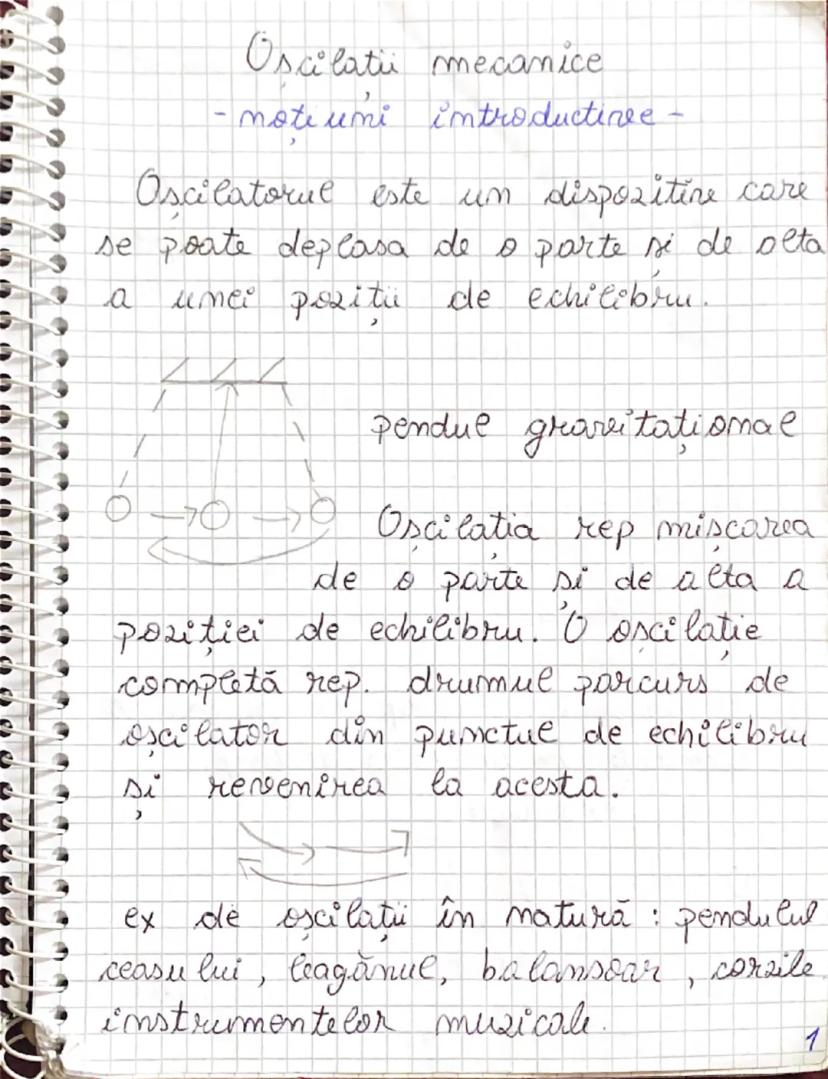 Oscilații mecanice
- noțiuni introductive -
Oșcilatorul este un dispozitiv care
se poate deplasa de o parte și de alta
a unei poziții de echilibru.
pendul gravitațional
Oșcilația rep mișcarea
de o parte și de alta a
poziției de echilibru. O oscilație
completă rep. drumul parcurs de
oșcilator din punctul de echilibru
și revenirea la acesta.
ex de oșcilații în natură : pendulul
ceasului, leagănul, balansoar, corzile
instrumentelor muzicale.
1